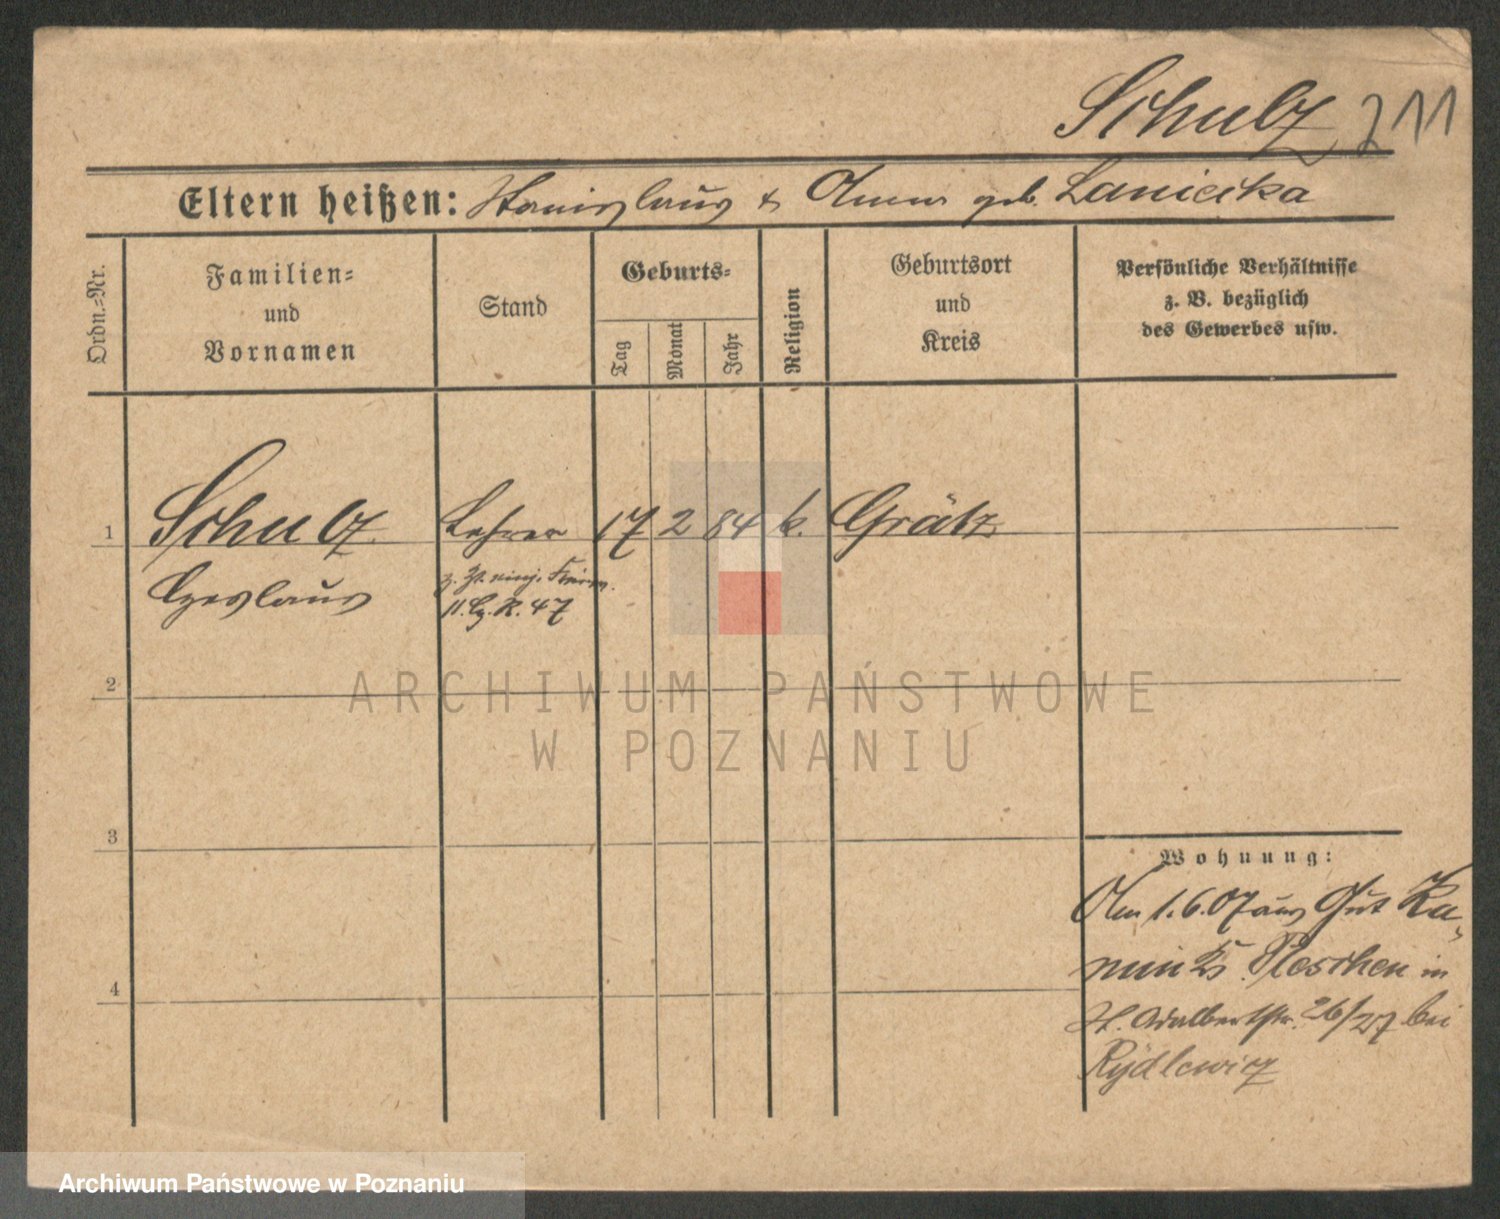 Schulz 211
Eltern heißen: Stanislaus & Anna geb. Lanicka
Ordn.=Nr.
Familien=
und
Vornamen
Stand
Geburts=
Tag
Monat
Jahr
Religion
Geburtsort
und
Kreis
Persönliche Verhältnisse
z. B. bezüglich
des Gewerbes usw.
1 Schulz Lehrer 17 2 84 k. Grätz
Czeslaus
z. Zt. einj. Freiw.
11. Cp. R. 47
2
3
4
Wohnung:
Am 1.6.07 aus Gut
Pleschen in
St. Adalbertstr. 26/27 bei
Rydlewicz
ARCHIWUM PAŃSTWOWE
W POZNANIU
Archiwum Państwowe w Poznaniu